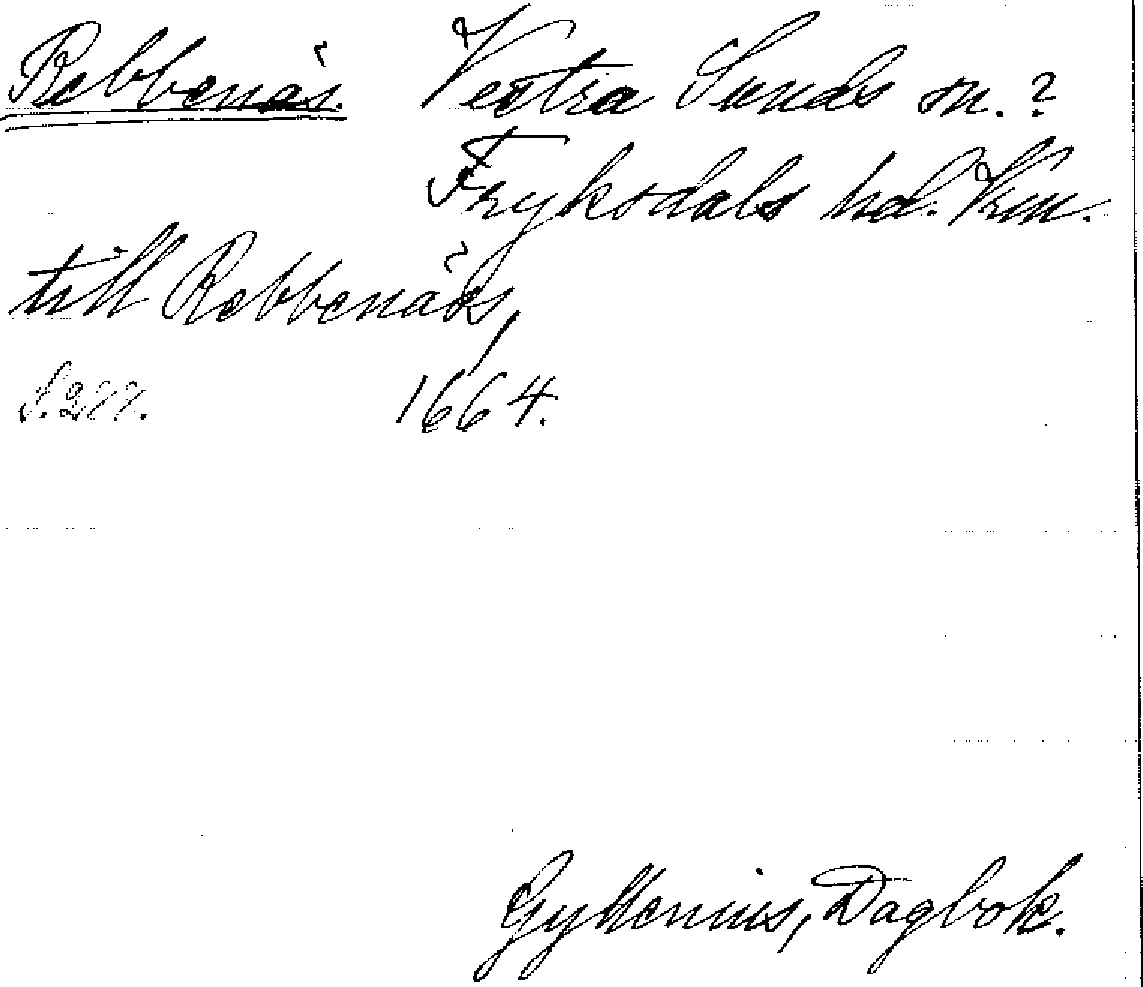 Rebbenäs. Vestra Sunds sn. ?
Fryksdals hd. Vrm.
till Rebbenäs,
S. 277. 1664.
Gyllenius, Dagbok.